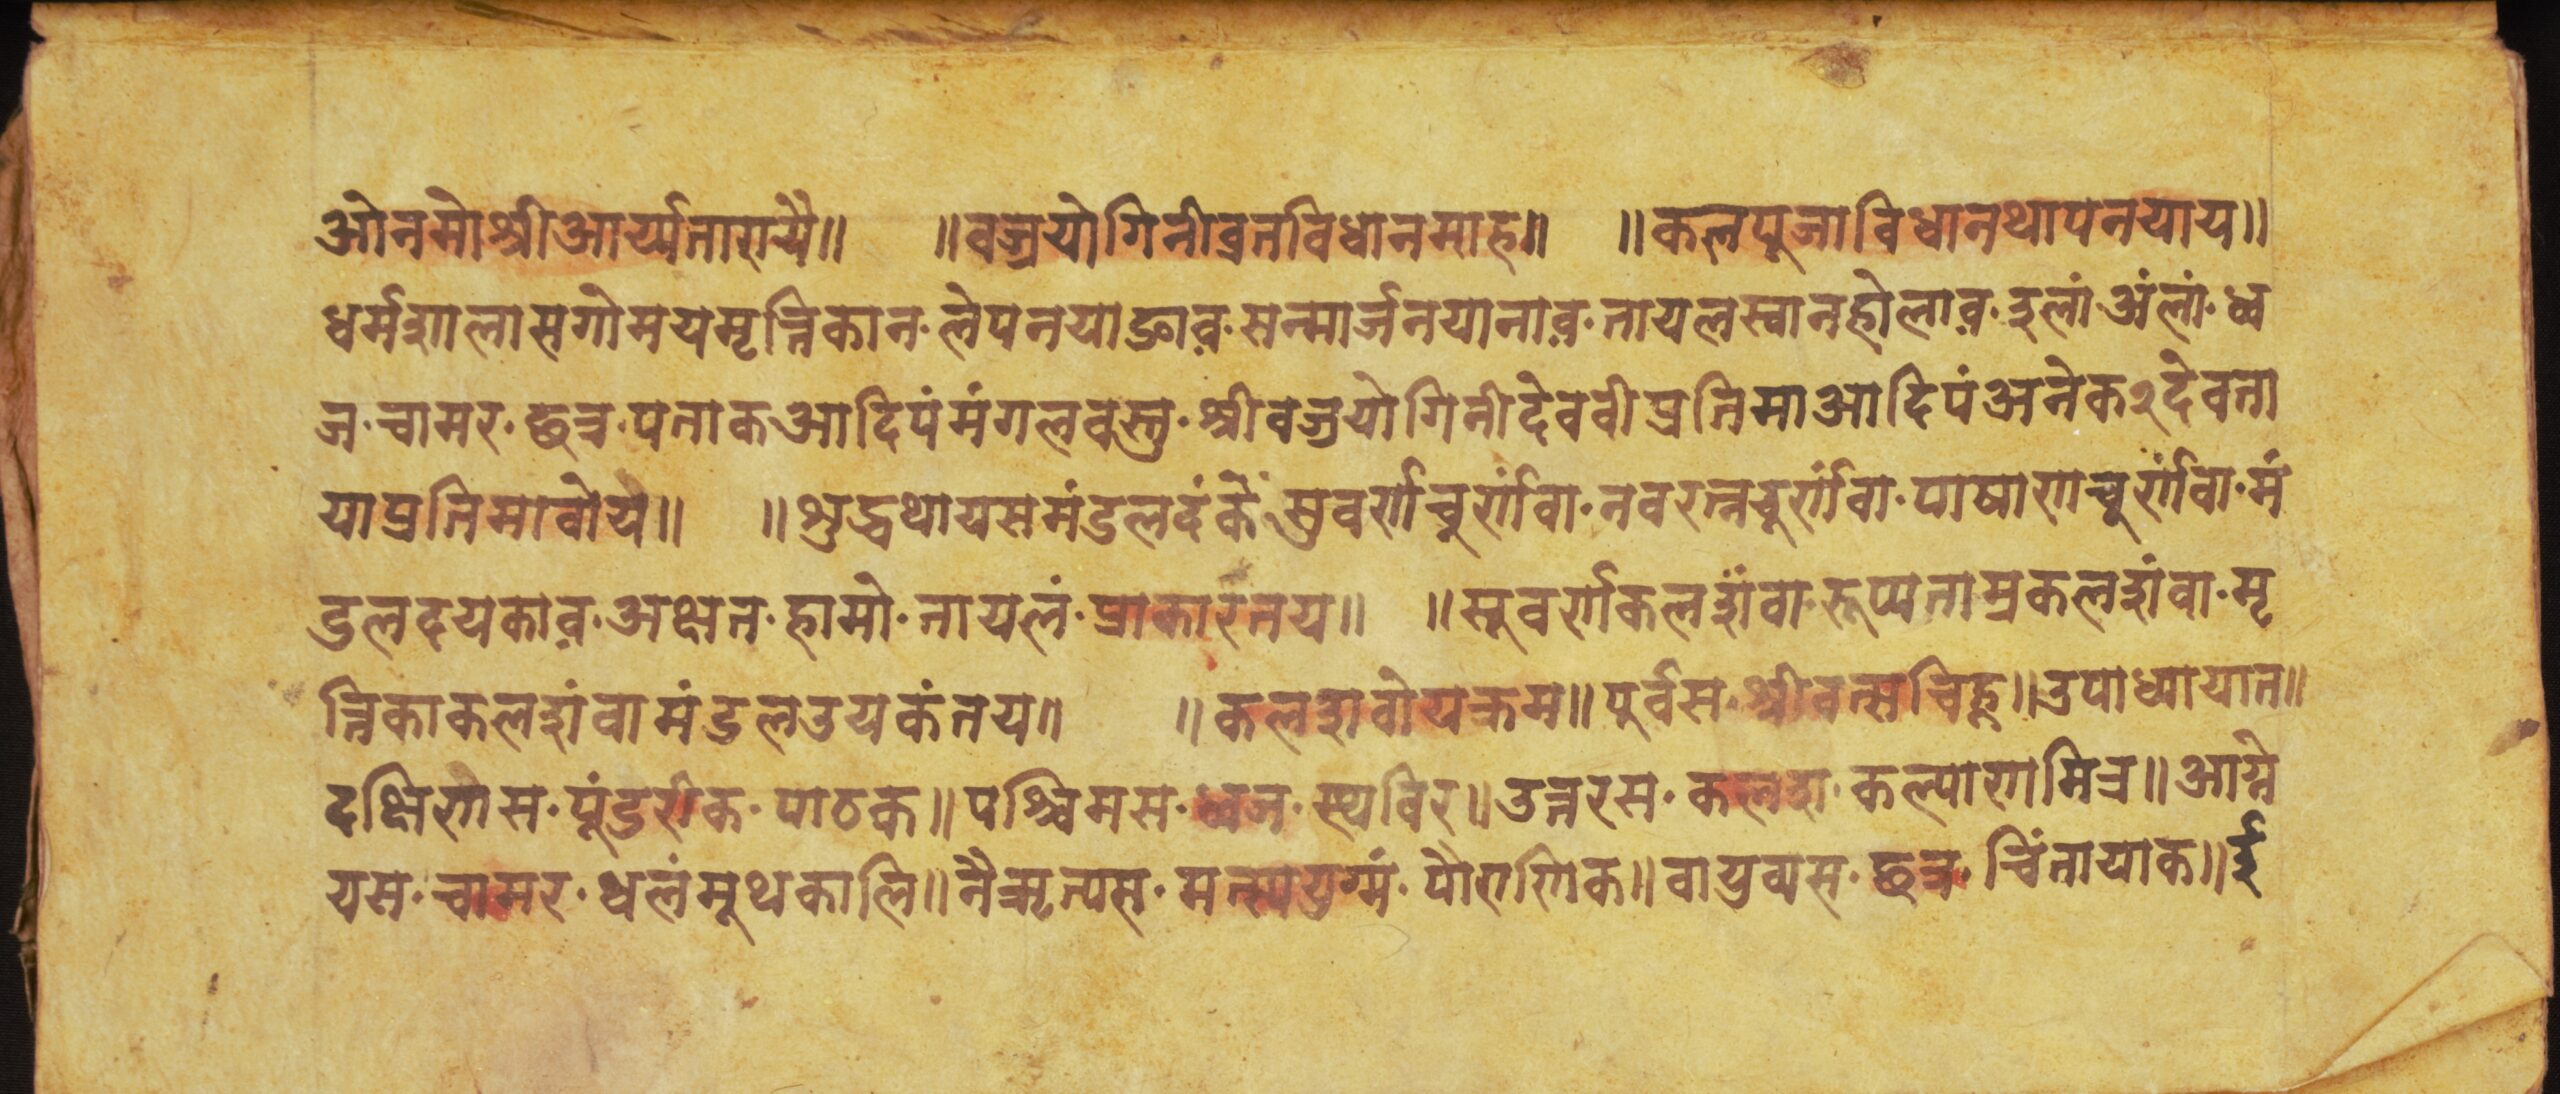 ओनमोश्रीआर्य्यतारायै॥ ॥वज्रयोगिनीव्रतविधानमाह॥ ॥कलपूजाविधानथापनयाय॥
धर्मशालासगोमयमृत्तिकान· लेपनयाङाव़· सन्मार्जनयानाव़· तायलस्वानहोलाव़· इलां अंलां· ध्व
ज· चामर· छत्र· पताकआदिपंमंगलवस्तु· श्रीवज्रयोगिनीदेववीप्रतिमाआदिपंअनेक२देवता
याप्रतिमावोये॥ ॥शुद्धथायसमंडलदंके सुवर्णचूर्णंवा· नवरत्नचूर्णंवा· पाषाणचूर्णंवा· मं
डलदयकाव़· अक्षत· हामो· तायलं· प्राकारतय॥ ॥सूवर्णकलशंवा· रूप्यताम्रकलशंवा· मृ
त्तिकाकलशंवामंडलउयकंतय॥ ॥कलशवोयक्रम॥ पूर्वस· श्रीवत्सचिह्न॥ उपाध्यायात॥
दक्षिणस· पूंडरीक· पाठक॥ पश्चिमस· ध्वज· स्थविर॥ उत्तरस· कलश· कल्याणमित्र॥ आग्ने
यस· चामर· थलंमूथकालि॥ नैऋत्यस· मत्स्ययुग्मं· पौराणिक॥ वायुव्यस· छत्र· चिंतायाक॥ ई